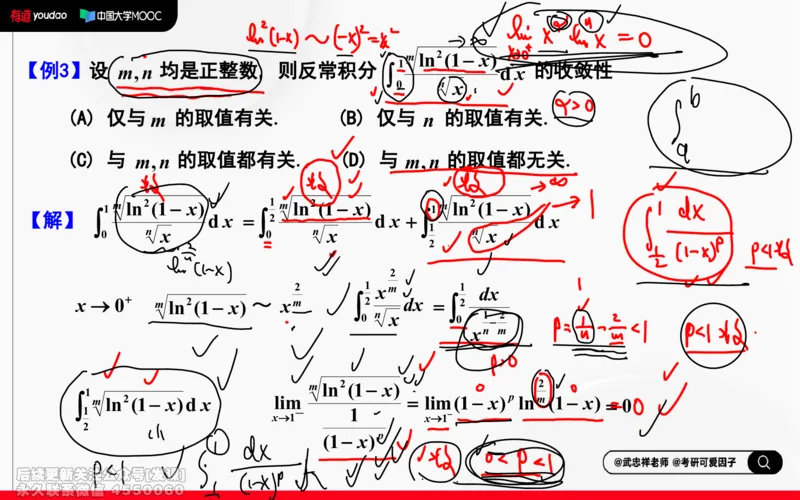 有道 youdao 中国大学MOOC
ln²(1-x) ~ (-x)² = x²
lim x^α ln^n x = 0
x→0⁺
α>0
【例3】设 m, n 均是正整数, 则反常积分 ∫₀¹ ᵐ√ln²(1−x) / ⁿ√x dx 的收敛性
(A) 仅与 m 的取值有关. (B) 仅与 n 的取值有关.
(C) 与 m, n 的取值都有关. (D) 与 m, n 的取值都无关.
∫ₐᵇ
【解】 ∫₀¹ ᵐ√ln²(1−x) / ⁿ√x dx = ∫₀^{1/2} ᵐ√ln²(1−x) / ⁿ√x dx + ∫_{1/2}¹ ᵐ√ln²(1−x) / ⁿ√x dx
→∞
→1
∫_{1/2}¹ dx / (1-x)^p p<1 收敛
ln^{2/m}(1-x)
x → 0⁺ ᵐ√ln²(1−x) ~ x^{2/m} ∫₀^{1/2} x^{2/m} / ⁿ√x dx = ∫₀^{1/2} dx / x^{1/n − 2/m}
p = 1/n - 2/m < 1
p<1 收敛
p>0
∫_{1/2}¹ ᵐ√ln²(1−x) dx lim_{x→1⁻} ᵐ√ln²(1−x) / (1 / (1−x)^p) = lim_{x→1⁻} (1−x)^p ln^{2/m}(1−x) = 0
p<1
∫ dx / (1-x)^p
收敛
0<p<1
@武忠祥老师 @考研可爱因子